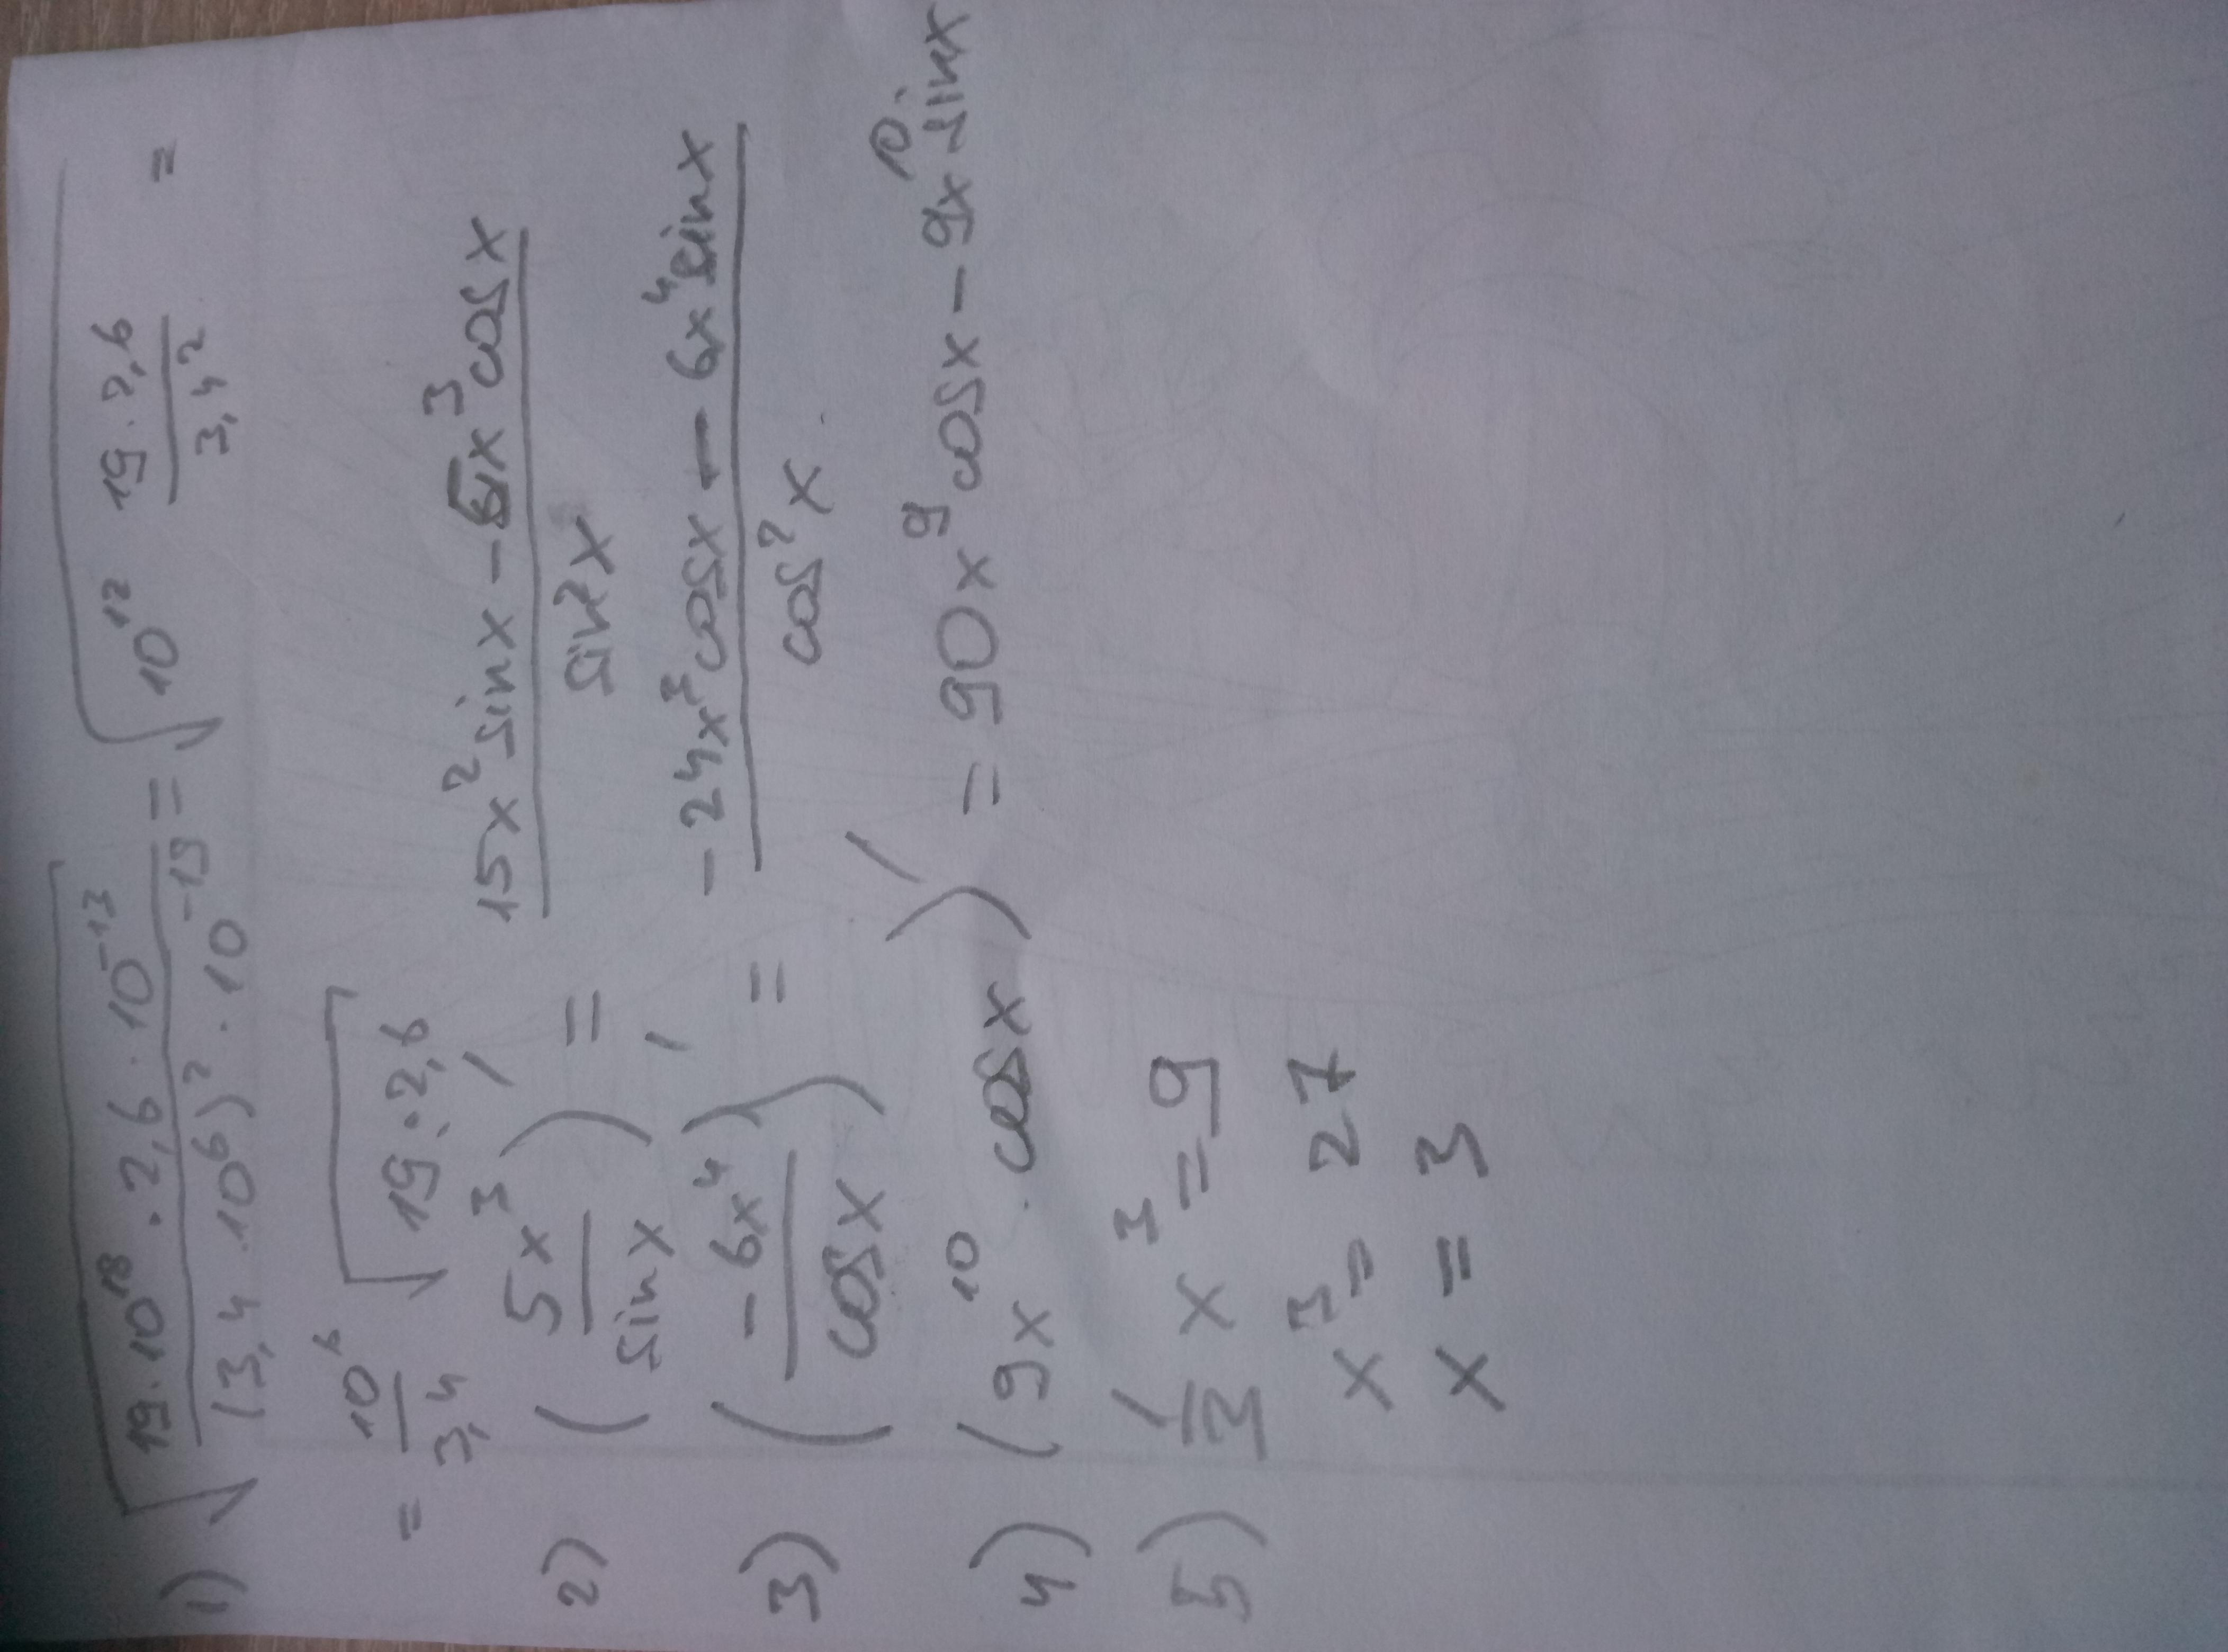 1) √(19·10¹⁸·2,6·10⁻¹³ / (3,4·10⁶)²·10⁻¹⁹) = √(10¹² 19·2,6 / 3,4²) =
= 10⁶/3,4 √(19·2,6)
2) (5x³/sinx)' = (15x² sinx - 5x³ cosx) / sin²x
3) (-6x⁴/cosx)' = (-24x³ cosx - 6x⁴ sinx) / cos²x
4) (9x¹⁰ · cosx)' = 90x⁹ cosx - 9x¹⁰ sinx
5) 1/3 x³ = 9
x³ = 27
x = 3